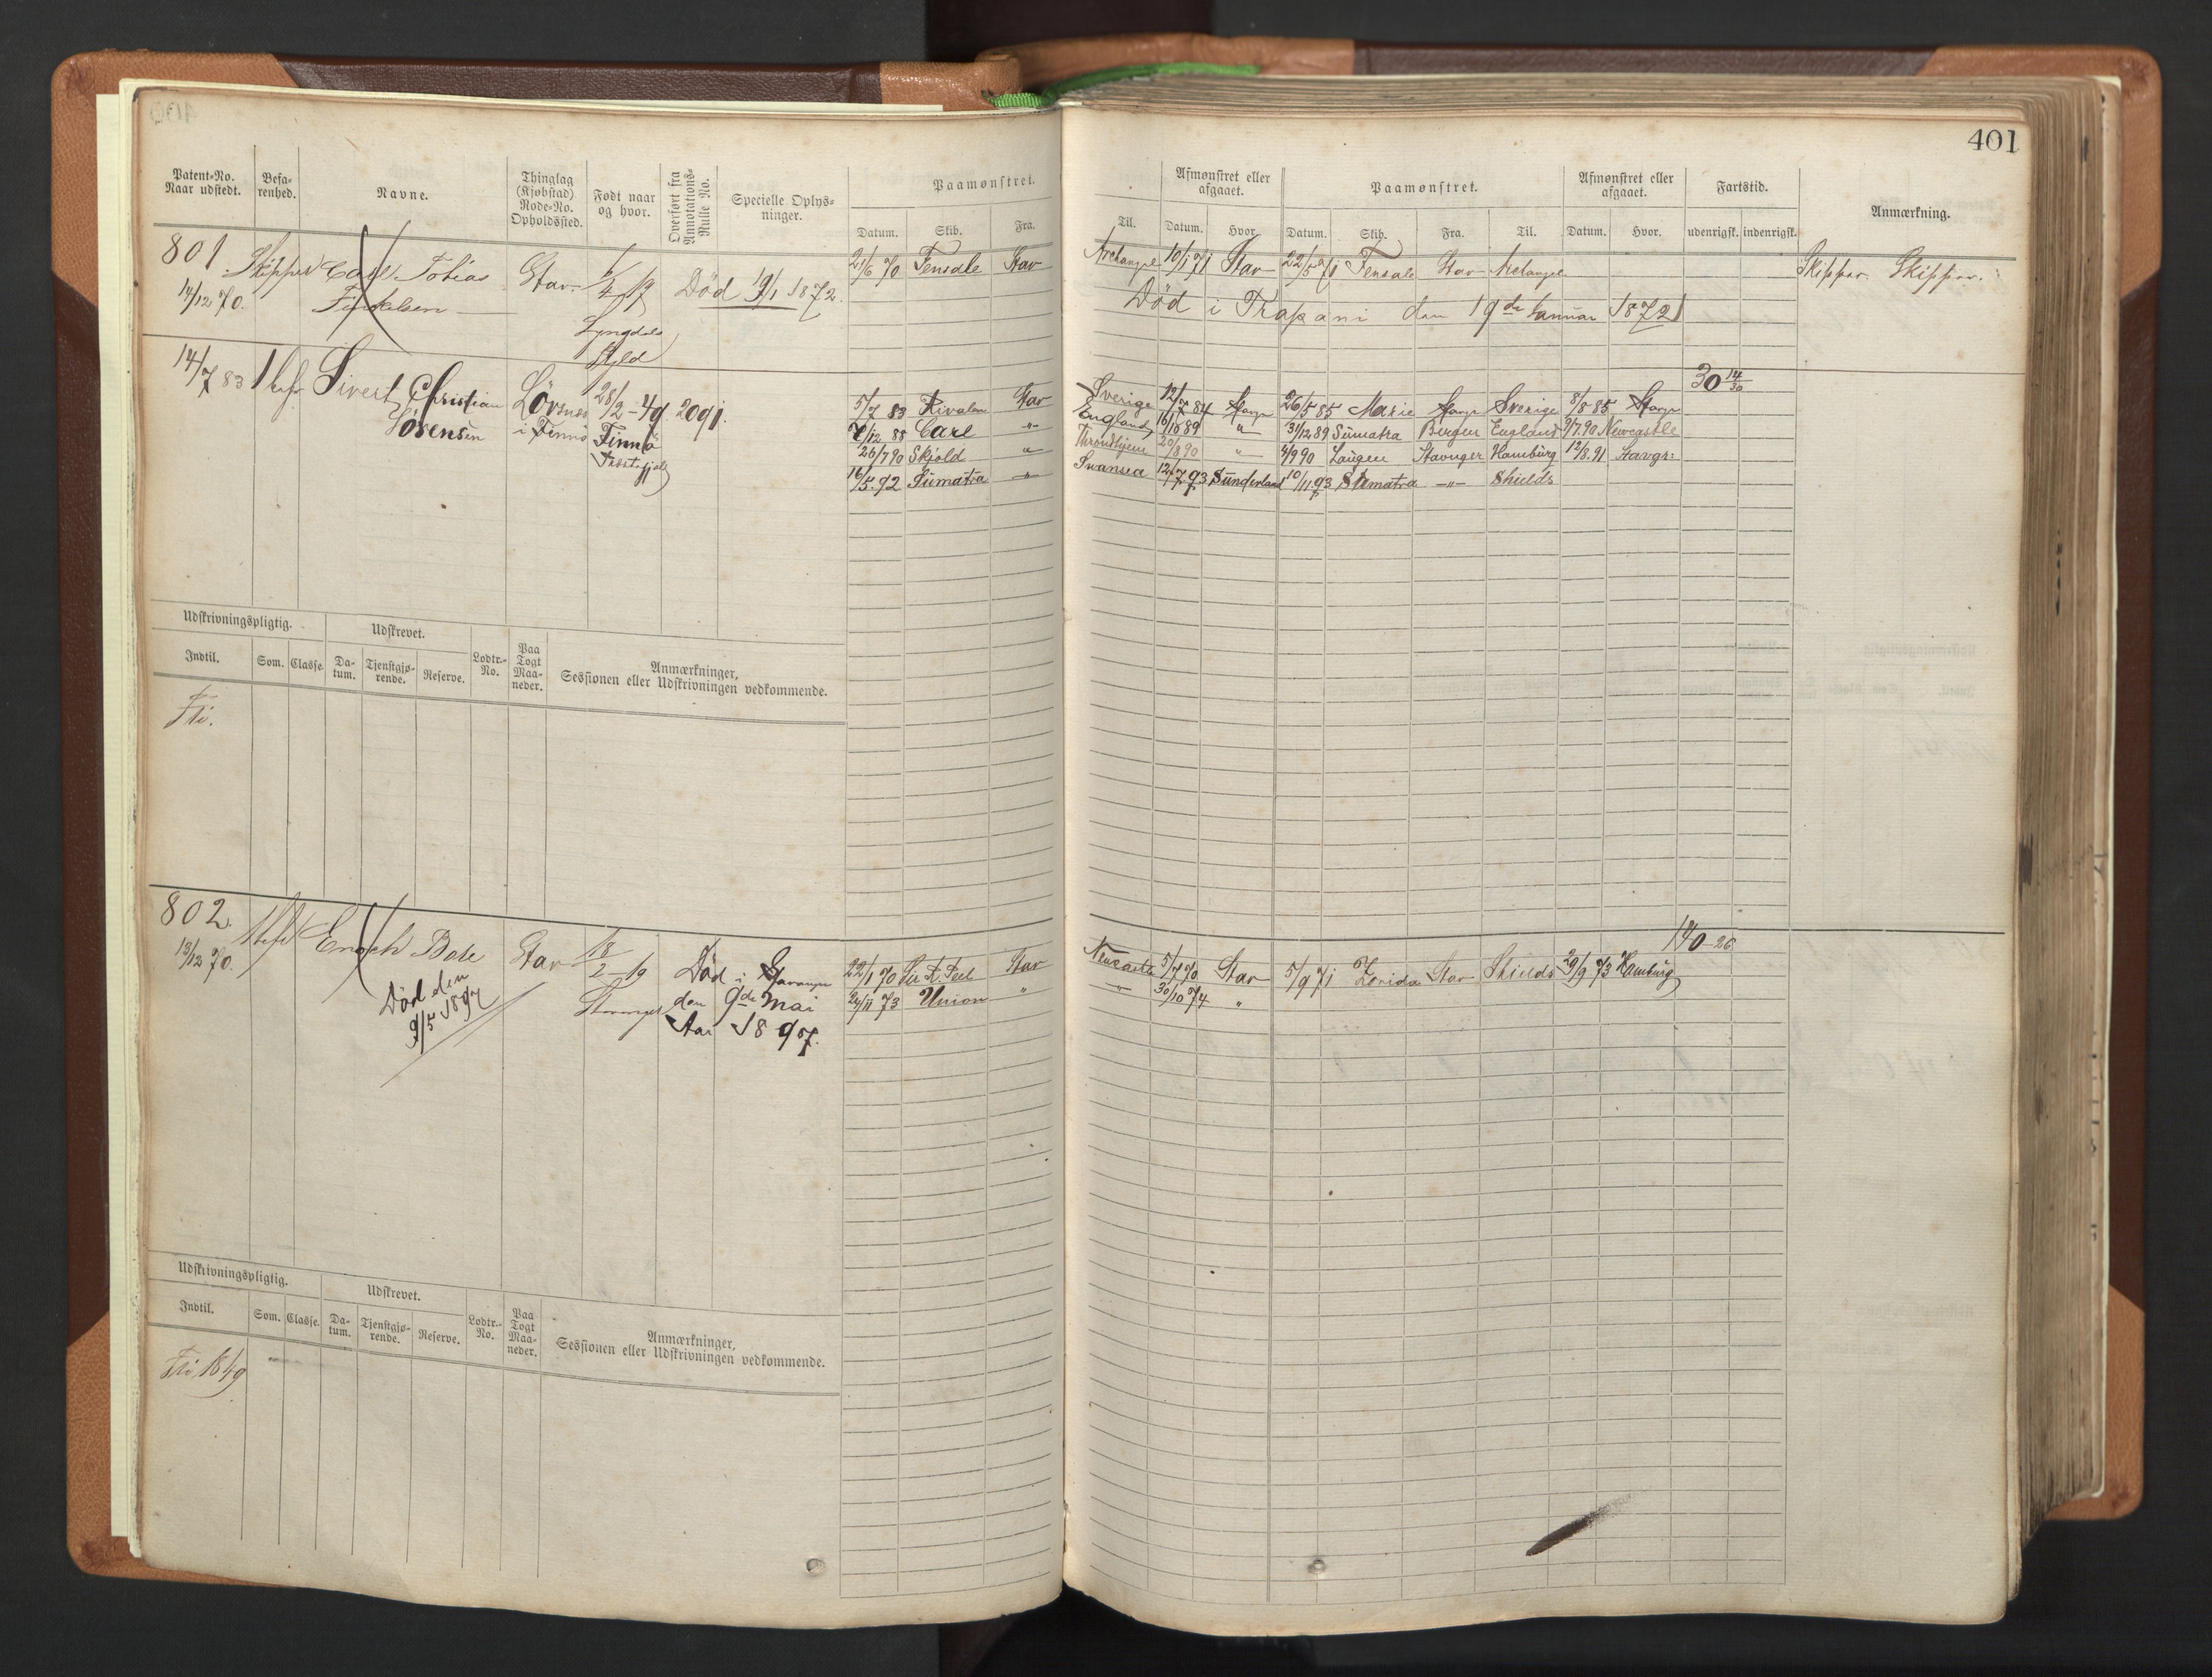 401
Patent-No. Naar udstedt.
Befarenhed.
Navne.
Thinglag (Kjøbstad) Rode-No. Opholdssted.
Født naar og hvor.
Overført fra Annotations-Rulle No.
Specielle Oplysninger.
Paamønstret.
Datum. Skib. Fra. Til.
Afmønstret eller afgaaet.
Datum. Hvor.
Paamønstret.
Datum. Skib. Fra. Til.
Afmønstret eller afgaaet.
Datum. Hvor.
Fartstid.
udenrigsk. indenrigsk.
Anmærkning.
801 Skipper Carl Tobias Stav. Død 19/1 1872. 21/6 70 Fensdale Stav Archangel 10/1 71 Stav 22/5 71 Fensdale Stav Archangel Skipper. Skipper.
14/12 70. Død i Trapani den 19de Januar 1872
Lyngdal
14/7 83 Sivert Christian 28/2-49. 2091. 30 14/30
Sørensen i Finnø Finnø
5/7 83 Rivalen Stav Sverige 12/7 84 Stavgr 26/5 85 Marie Stavgr Sverige 8/8 85 Stavgr
7/12 88 Carl -"- England 16/1 89 " 31/12 89 Sumatra Bergen England 9/7.90 Newcastle
26/7 90 Skjold " Throndhjem 20/8 90 " 4/9 90 Laugen Stavnger Hamburg 12/8.91 Stavgr:
16/5.92 Sumatra -"- Swansea 12/7.93 Sunderland 10/11.93 Sumatra -"- Shields
Udskrivningspligtig.
Udskrevet.
Indtil. Som. Classe. Datum. Tjenstgjørende. Reserve. Lodtr.-No. Paa Togt Maaneder.
Anmærkninger, Sessionen eller Udskrivningen vedkommende.
802. Enoch Stav 18/2 19 Død i Stavanger 22/1 70 Stav Newcastle 5/7 70 Stav 5/9 71 Stav Shields 29/9 73 Hamburg 140-26
13/12 70. Død den Stavanger den 9de Mai 24/11 73 Union " -"- 30/10 74 "
9/5 1897 Aar 1897.
Udskrivningspligtig.
Udskrevet.
Indtil. Som. Classe. Datum. Tjenstgjørende. Reserve. Lodtr.-No. Paa Togt Maaneder.
Anmærkninger, Sessionen eller Udskrivningen vedkommende.